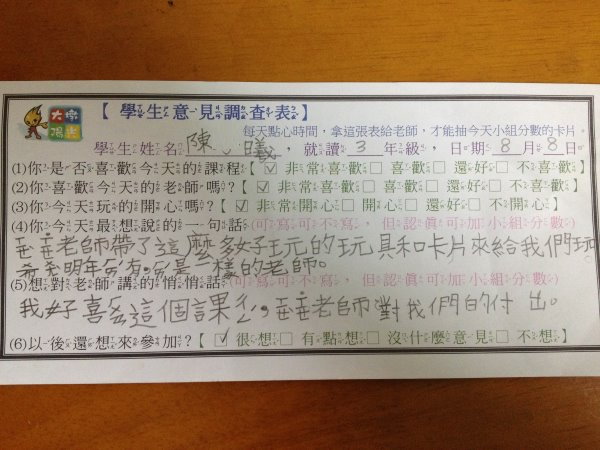 大宇陽光【學生意見調查表】
每天點心時間，拿這張表給老師，才能抽今天小組分數的卡片。
學生姓名：陳 曦，就讀 3 年級，日期 8 月 8 日
(1)你是否喜歡今天的課程【☑非常喜歡□喜歡□還好□不喜歡】
(2)你喜歡今天的老師嗎？【☑非常喜歡□喜歡□還好□不喜歡】
(3)你今天玩的開心嗎？【☑非常開心□開心□還好□不開心】
(4)你今天最想說的一句話(可寫可不寫，但認真可加小組分數)
老師帶了這麼多好玩的玩具和卡片來給我們玩
希望明年 有。 是一樣的老師。
(5)想對老師講的悄悄話(可寫可不寫，但認真可加小組分數)
我好喜 這個課 ，老師對我們的付出。
(6)以後還想來參加？【☑很想□有點想□沒什麼意見□不想】